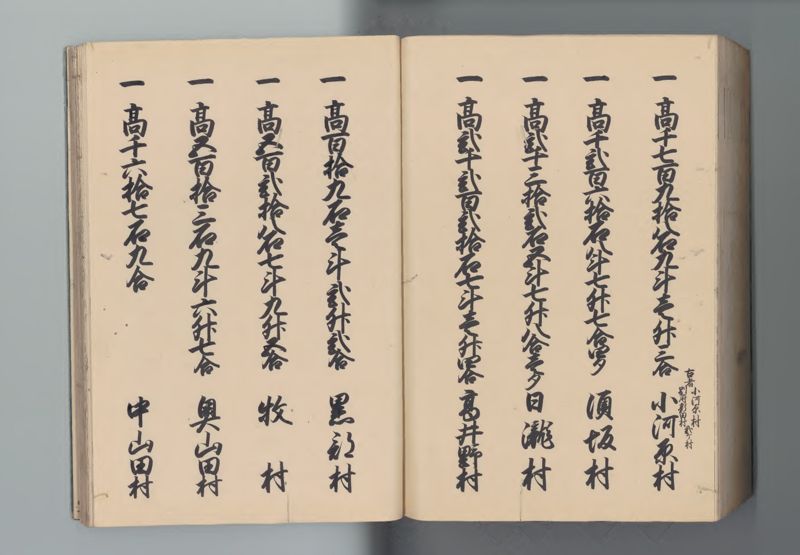 一 高千七百九拾八石九斗壱升三合 小河原村
古者 小河原村
一 高千弐百六拾石八斗七升七合四夕 須坂村
一 高弐千三拾弐石五斗七升八合壱夕 日瀧村
一 高弐千弐百弐拾石七斗壱升四合 高井野村
一 高百拾九石壱斗弐升弐合 黒部村
一 高五百弐拾八石七斗九升五合 牧村
一 高五百拾三石九斗六升七合 奥山田村
一 高千六拾七石九合 中山田村